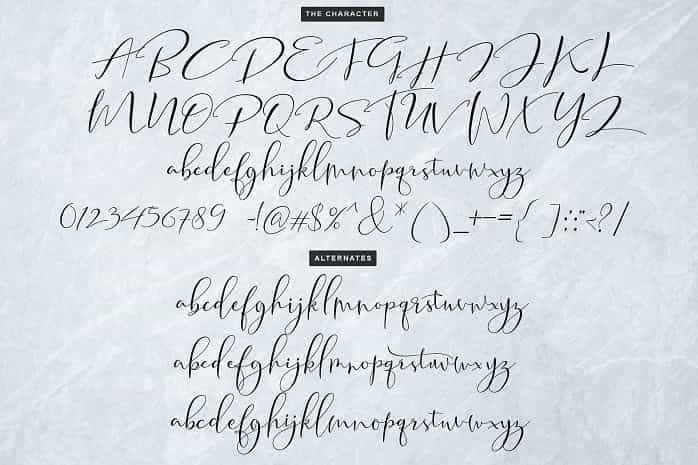 THE CHARACTER
ABCDEFGHIJKL
MNOPQRSTUVWXYZ
abcdefghijklmnopqrstuvwxyz
0123456789 -!@#$%^&*()_+-={ ]:;"<?/
ALTERNATES
abcdefghijklmnopqrstuvwxyz
abcdefghijklmnopqrstuvwxyz
abcdefghijklmnopqrstuvwxyz